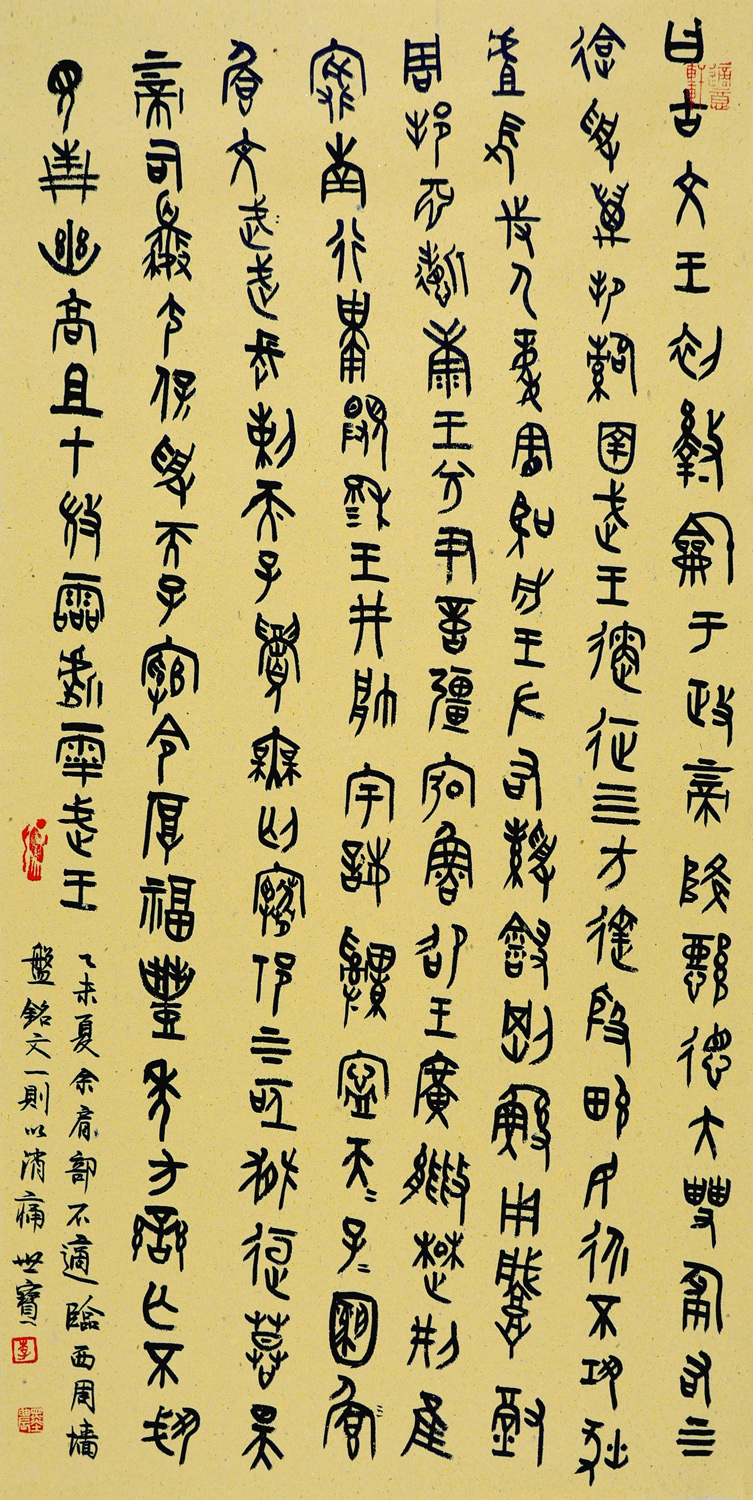 曰古文王初盭龢于政上帝降懿德大甹匍有上下
迨受萬邦圉武王遹征四方達殷畯民永不巩狄
虘長伐尸童憲聖成王左右剛鯀用肇徹
周邦淵哲康王兮尹億疆宏魯邵王廣能楚荊隹
寏南行祗顯穆王井帥宇誨寧天子
文武長剌天子眉無匄祁上下亟獄桓慕昊
上帝司夔保受天子綰令厚福豐年方蠻亡不
青幽高且才微霝處雩武王
乙未夏余肩部不適臨西周墻
盤銘文一則以消痛世寶
李